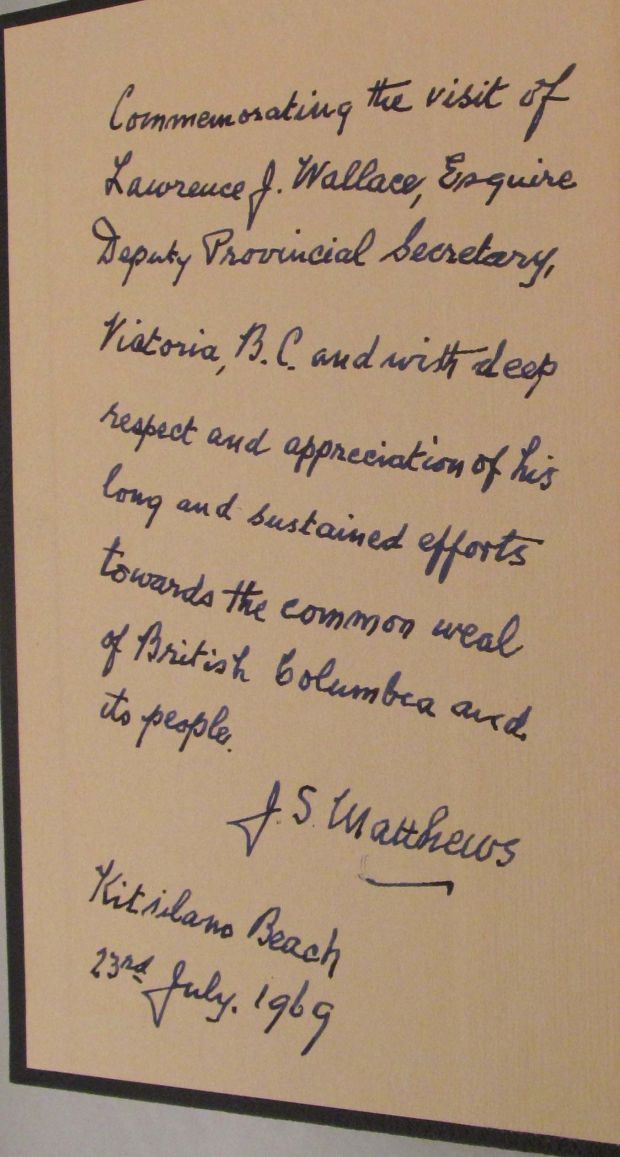 Commemorating the visit of
Lawrence J. Wallace, Esquire
Deputy Provincial Secretary,
Victoria, B.C. and with deep
respect and appreciation of his
long and sustained efforts
towards the common weal
of British Columbia and
its people.
J. S. Matthews
Kitsilano Beach
23rd July. 1969